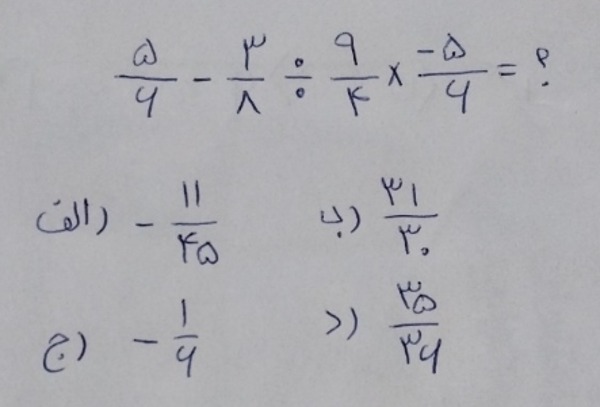 ۵/۶ - ۳/۸ ÷ ۹/۴ × -۵/۶ = ؟
الف) - ۱۱/۴۵ ب) ۳۱/۳۰
ج) - ۱/۶ د) ۳۵/۳۶